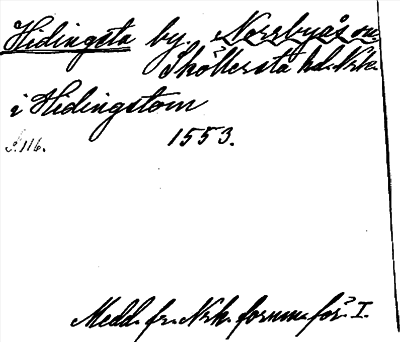 Hidingsta by, Norrbyås sn.
Sköllersta hd. Nrk.
i Hidingstom
S. 116. 1553.
Medd. fr. Nrk. fornm. för. I.